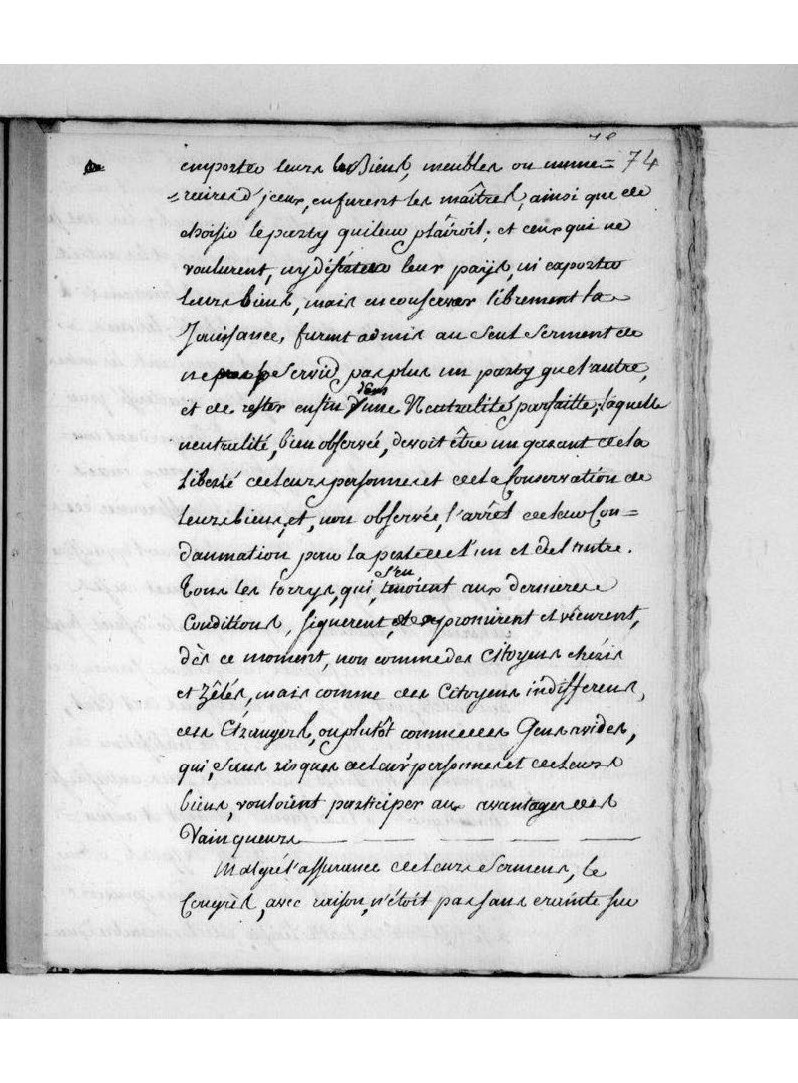 74
emporter leurs Biens, meubles ou nume=
=raires d'jceux, en furent les maîtres, ainsi que de
choisir le party qui leur plaîroit; et ceux qui ne
voulurent, ny déserter leur paÿs, ni exporter
leurs biens, mais en conserver librement la
Jouissance, furent admis au seul serment de
ne Servir pas plus un party que l'autre,
et de rester enfin dans une Neutralité parfaitte; laquelle
neutralité, bien observée, devoit être un garant de la
liberté de leurs personnes et de la Conservation de
leurs biens, et, non observée, l'arrêt de leur Con=
damnation pour la perte de l'un et de l'autre.
Tous les torrys, qui s'en tinoient aux dernieres
Conditions, signerent, promirent et vécurent,
dès ce moment, non comme des Citoyens chéris
et Zêlés, mais comme des Citoyens indifferens,
des Etrangers, ou plutôt comme des Gens avides,
qui, Sans risques de leurs personnes et de leurs
biens, vouloient participer aux avantages des
Vainqueurs
Malgré l'assurance de leurs Sermens, le
Congrès, avec raison, n'étoit pas sans crainte sur